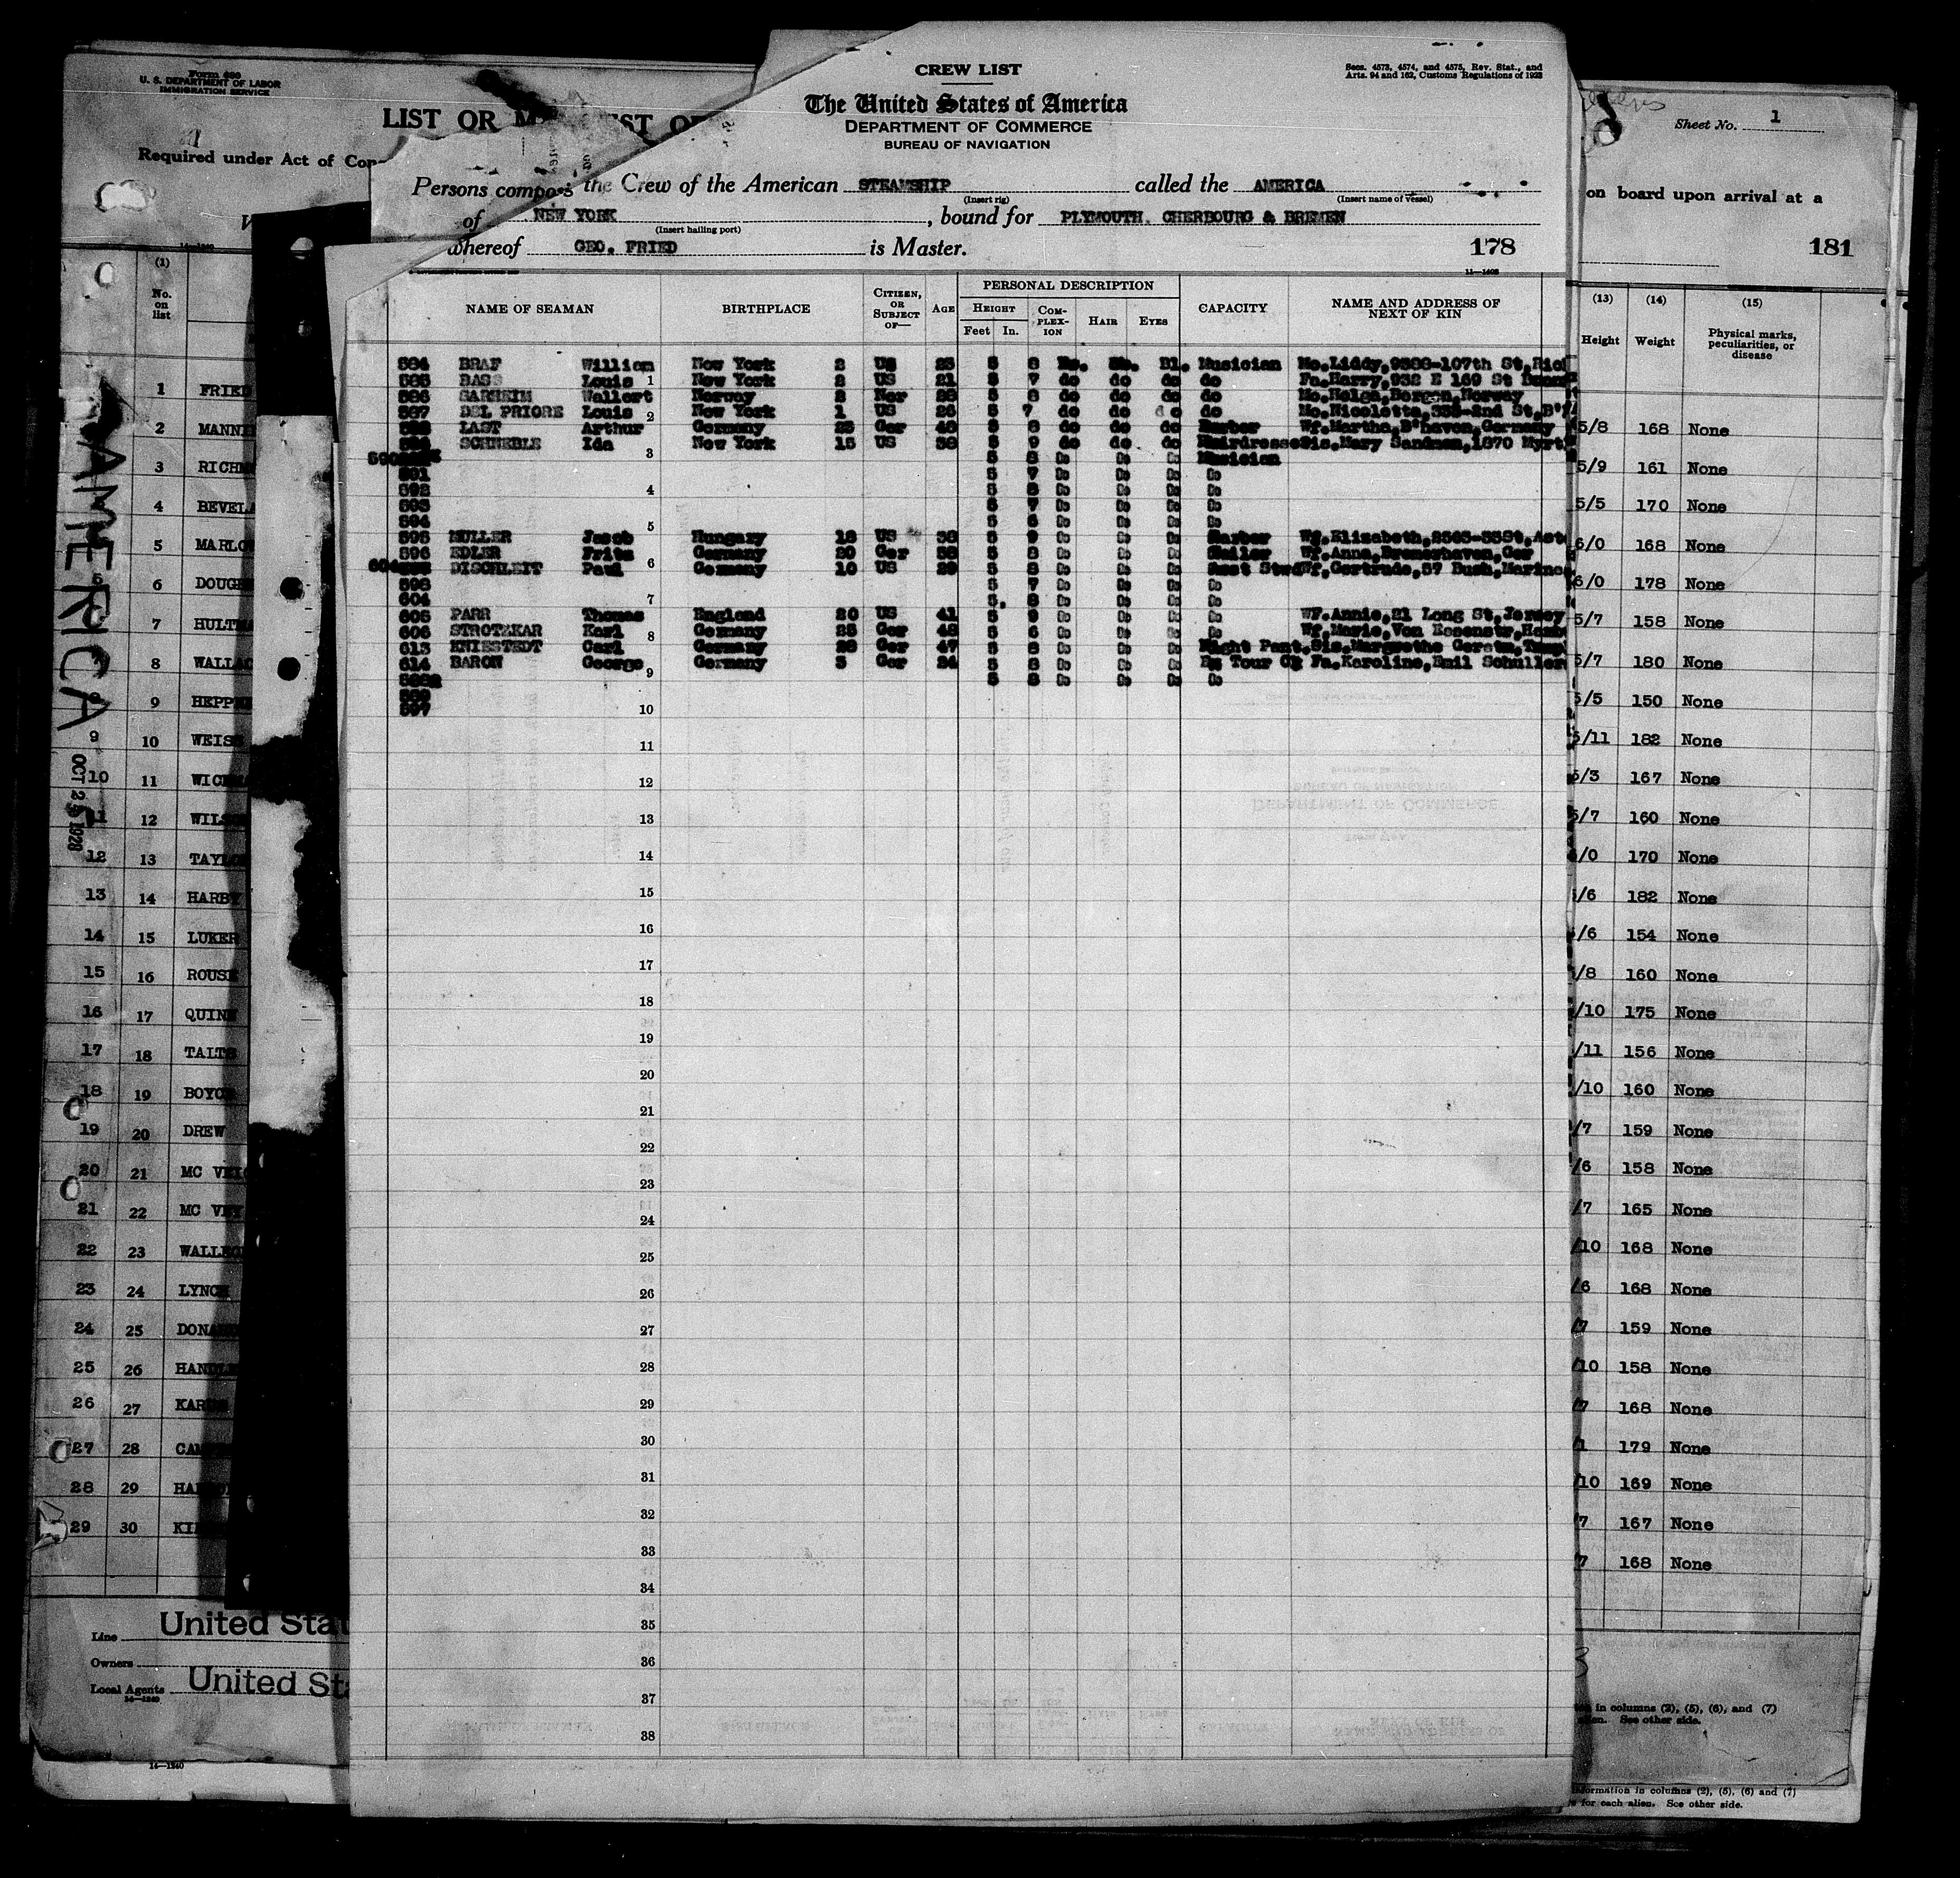 Form 680
U. S. DEPARTMENT OF LABOR
IMMIGRATION SERVICE
LIST OR
Required under Act of Con
CREW LIST
Secs. 4573, 4574, and 4575, Rev. Stat., and
Arts. 94 and 162, Customs Regulations of 1923
The United States of America
DEPARTMENT OF COMMERCE
BUREAU OF NAVIGATION
Persons compos the Crew of the American STEAMSHIP called the AMERICA
(Insert rig) (Insert name of vessel)
of NEW YORK, bound for PLYMOUTH, CHERBOURG & BREMEN
(Insert hailing port)
whereof GEO. FRIED is Master. 178
11—1403
NAME OF SEAMAN BIRTHPLACE CITIZEN, OR SUBJECT OF— AGE PERSONAL DESCRIPTION CAPACITY NAME AND ADDRESS OF NEXT OF KIN
HEIGHT COM-PLEX-ION HAIR EYES
Feet In.
584 BRAF William New York 2 US 23 5 8 Bl. Musician Mo.Liddy, 107th St,Rich
585 BASS Louis New York 2 US 21 5 7 do do do do Fa.Harry,932 E 169 St
586 Wallert Norway 2 Nor 28 5 8 do do do do Mo.Helga,Bergen,Norway
587 DEL PRIORE Louis New York 1 US 26 5 7 do do do do Mo.Nicoletta, 2nd St,B'
LAST Arthur Germany Ger 48 5 8 do do do Barber Wf.Martha,B'haven,Germany
SCHNEBLE Ida New York 15 US 38 5 9 do do do Hairdresser Sis,Mary Sandman,1870 Myrt
590 5 8 Do Do Do Musician
591 5 7 Do Do Do Do
592 5 8 Do Do Do Do
593 5 7 Do Do Do Do
594 5 6 Do Do Do Do
595 MULLER Jacob Hungary 18 US 38 5 9 Do Do Do Barber Wf.Elizabeth,
596 EDLER Fritz Germany 20 Ger 38 5 8 Do Do Do Wf.Anna,Bremerhaven,Ger
DISCHLEIT Paul Germany 10 US 29 5 8 Do Do Do Asst Stwd Wf,Gertrude,57 Bush,Mariner
598 5 7 Do Do Do Do
604 5. 8 Do Do Do Do
605 PARR Thomas England 20 US 41 5 9 Do Do Do Do Wf.Annie,21 Long St,Jersey
606 STROTZKAR Karl Germany 25 Ger 48 5 6 Do Do Do Do Wf,Marie,Von Essenstr,Hamb
613 KNIESTEDT Carl Germany Ger 47 5 8 Do Do Do Night Pant. Sis,Margrethe
614 BARON George Germany 3 Ger 24 5 8 Do Do Do Tour Fa,Karoline,Emil Schuller
5 8 Do Do Do Do
589
597
1
2
3
4
5
6
7
8
9
10
11
12
13
14
15
16
17
18
19
20
21
22
23
24
25
26
27
28
29
30
31
32
33
34
35
36
37
38
AMERICA
OCT 1928
(1)
No. on list
1 FRIED
2 MANNI
3 RICHM
4 BEVEL
5 MARLO
6 DOUG
7 HULT
8 WALLAC
9 HEPP
9 10 WEIS
10 11 WIC
11 12 WILS
12 13 TAYL
13 14 HARBY
14 15 LUKER
15 16 ROUSE
16 17 QUINN
17 18 TALTS
18 19 BOYCE
19 20 DREW
20 21 MC VEI
21 22 MC VEY
22 23 WALL
23 24 LYNCH
24 25 DONA
25 26 HAND
26 27 KAR
27 28 CAM
28 29 HA
29 30 KI
Line United Stat
Owners
Local Agents United Sta
14—1240
14—1240
Sheet No. 1
on board upon arrival at a
181
(13) (14) (15)
Height Weight Physical marks, peculiarities, or disease
5/8 168 None
5/9 161 None
5/5 170 None
6/0 168 None
6/0 178 None
5/7 158 None
5/7 180 None
5/5 150 None
5/11 182 None
5/3 167 None
5/7 160 None
/0 170 None
/6 182 None
/6 154 None
/8 160 None
/10 175 None
/11 156 None
/10 160 None
/7 159 None
/6 158 None
/7 165 None
/10 168 None
/6 168 None
/7 159 None
/10 158 None
/7 168 None
/1 179 None
/10 169 None
/7 167 None
/7 168 None
in columns (2), (5), (6), and (7)
alien. See other side.
formation in columns (2), (5), (6) and (7)
for each alien. See other side.